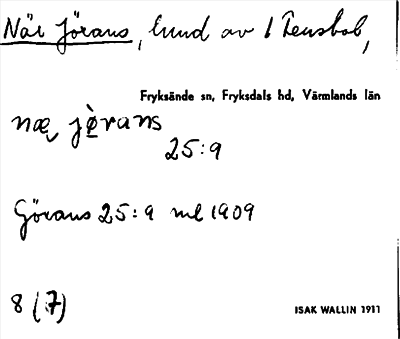 När Jörans, lund av 1 Tensbol,
Fryksände sn, Fryksdals hd, Värmlands län
næ jø̀rans
25:9
Görans 25:9 ml 1909
8 (7)
ISAK WALLIN 1911